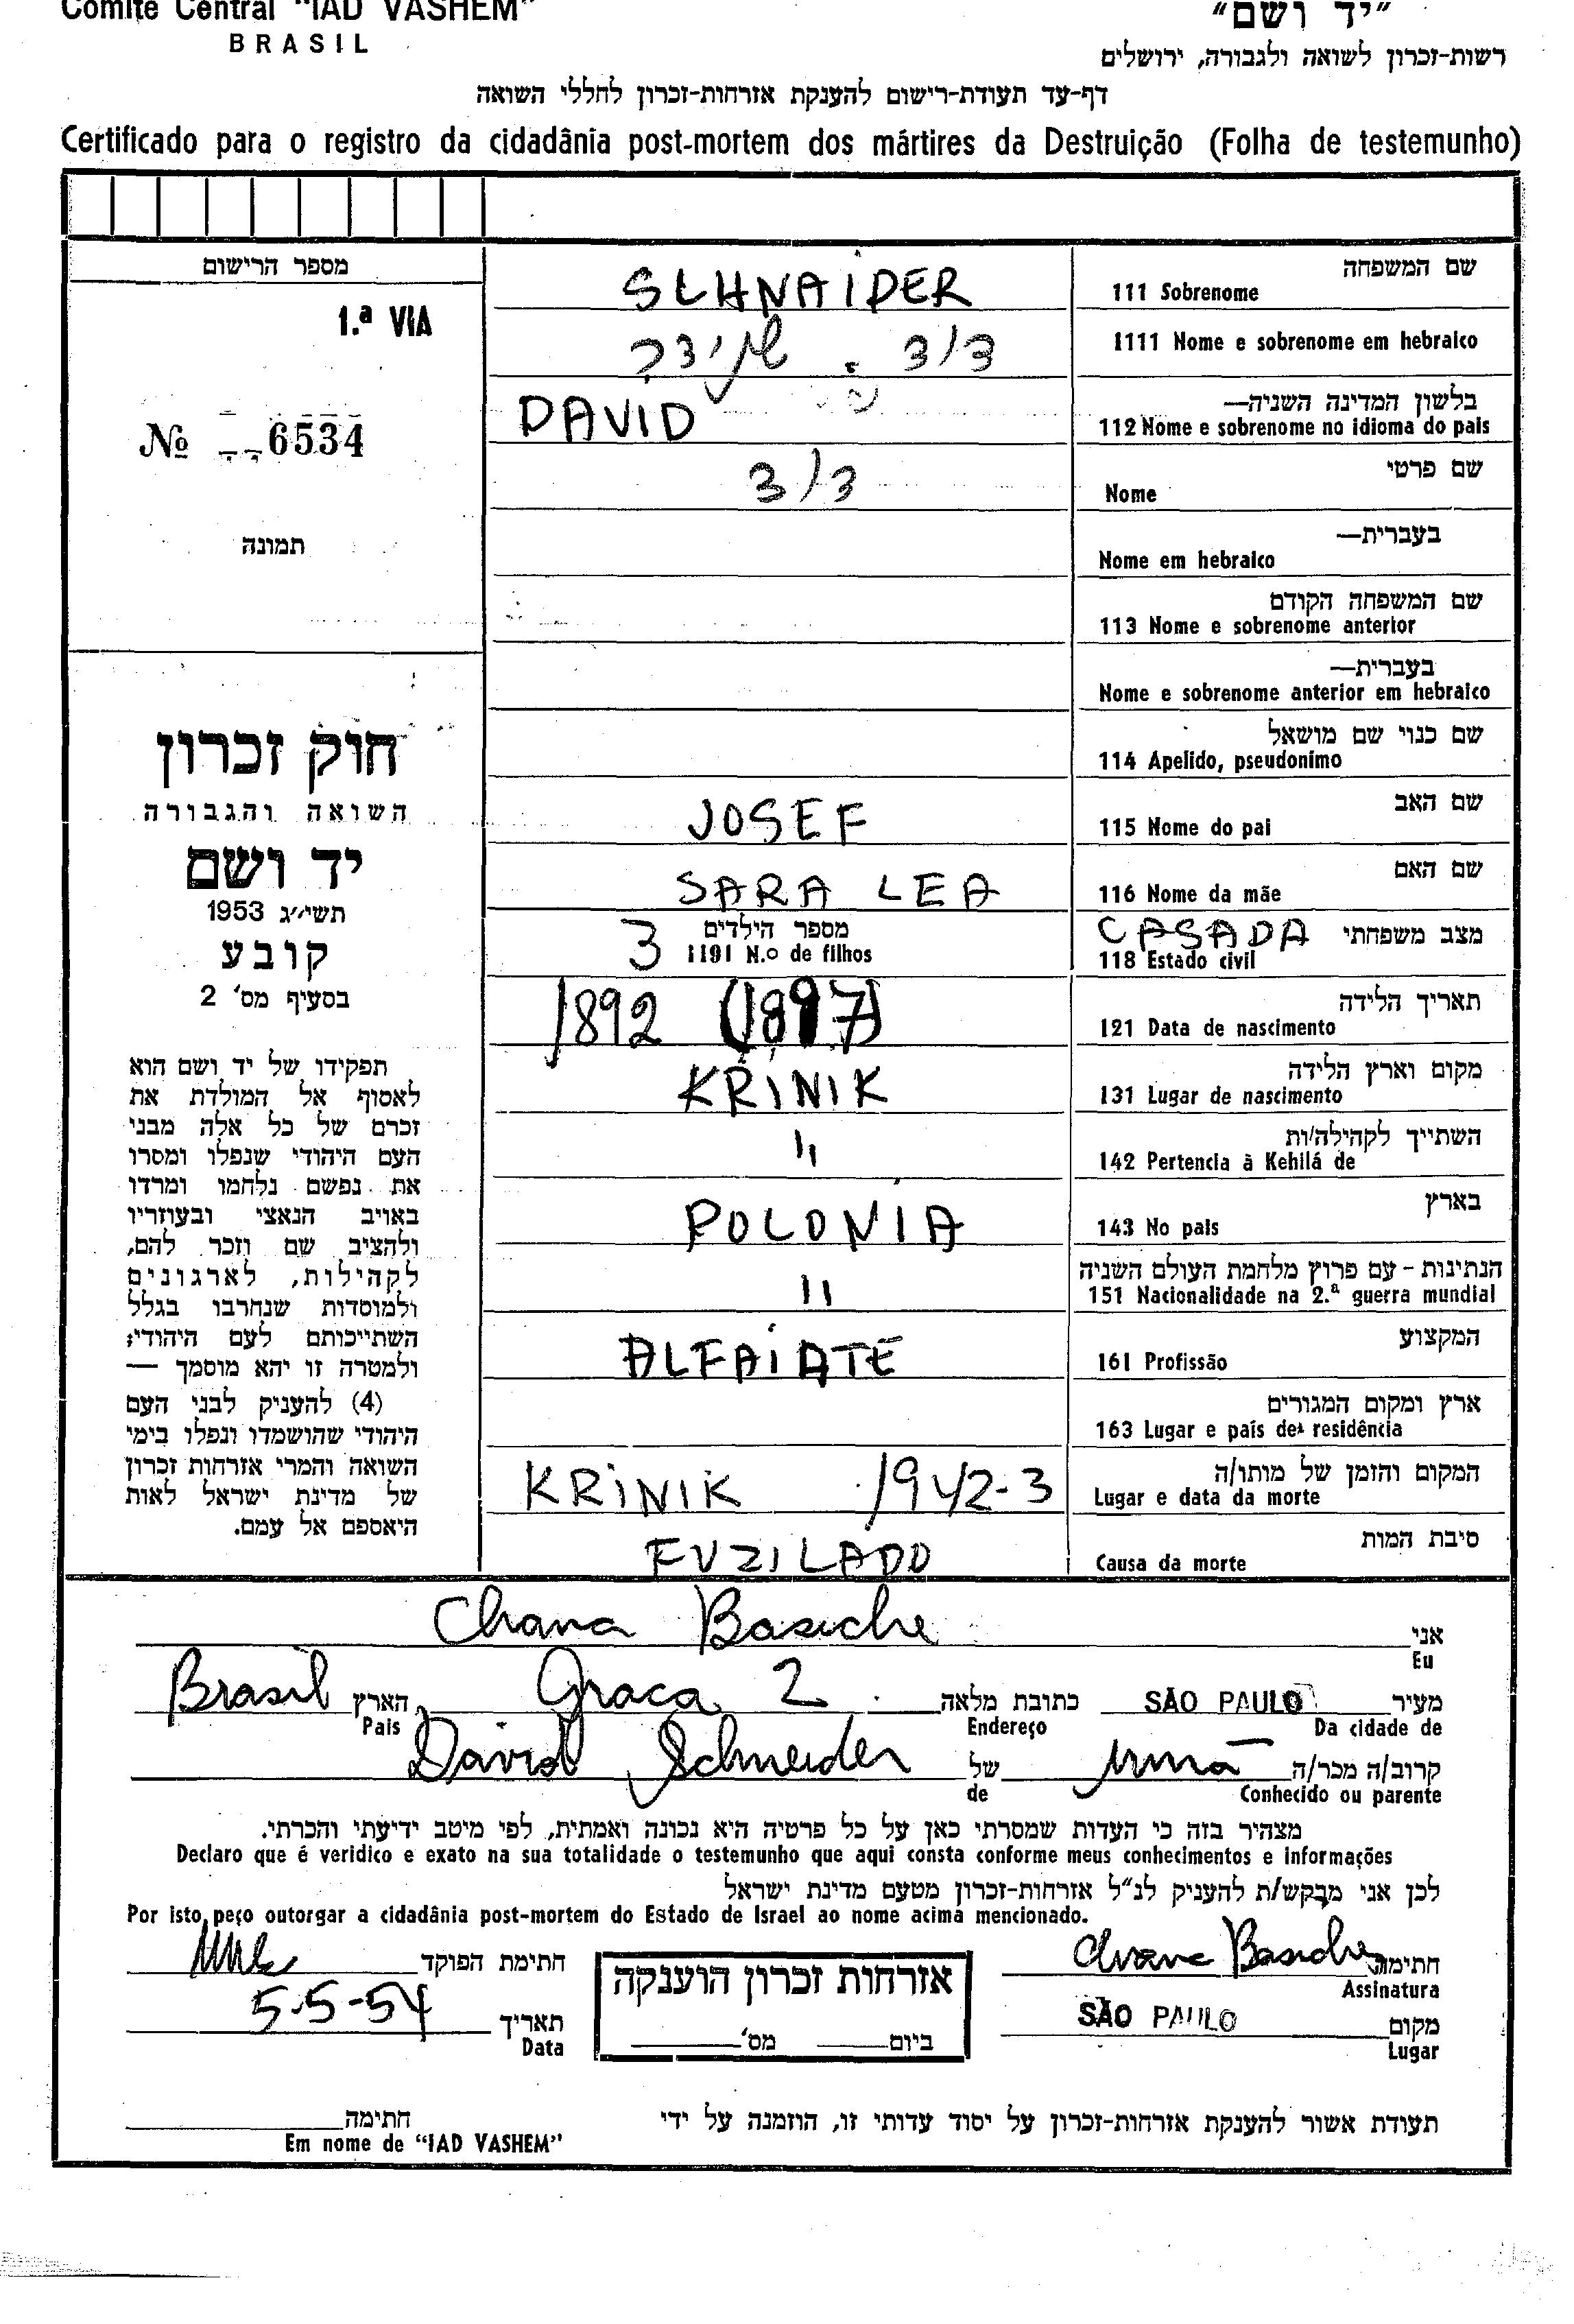 Comité Central "IAD VASHEM"
BRASIL
"יד ושם"
רשות-זכרון לשואה ולגבורה, ירושלים
דף-עד תעודת-רישום להענקת אזרחות-זכרון לחללי השואה
Certificado para o registro da cidadânia post-mortem dos mártires da Destruição (Folha de testemunho)
מספר הרישום
1.ª VIA
№ 6534
תמונה
חוק זכרון
השואה והגבורה
יד ושם
תשי״ג 1953
קובע
בסעיף מס' 2
תפקידו של יד ושם הוא
לאסוף אל המולדת את
זכרם של כל אלה מבני
העם היהודי שנפלו ומסרו
את נפשם נלחמו ומרדו
באויב הנאצי ובעוזריו
ולהציב שם וזכר להם,
לקהילות, לארגונים
ולמוסדות שנחרבו בגלל
השתייכותם לעם היהודי;
ולמטרה זו יהא מוסמך —
(4) להעניק לבני העם
היהודי שהושמדו ונפלו בימי
השואה והמרי אזרחות זכרון
של מדינת ישראל לאות
היאספם אל עמם.
שם המשפחה
111 Sobrenome SCHNAIDER
1111 Nome e sobrenome em hebraico דוד שניידר
בלשון המדינה השניה—
112 Nome e sobrenome no idioma do pais DAVID
שם פרטי
Nome דוד
בעברית—
Nome em hebraico
שם המשפחה הקודם
113 Nome e sobrenome anterior
בעברית—
Nome e sobrenome anterior em hebraico
שם כנוי שם מושאל
114 Apelido, pseudonimo
שם האב
115 Nome do pai JOSEF
שם האם
116 Nome da mãe SARA LEA
מצב משפחתי CASADA
118 Estado civil
מספר הילדים
1191 N.o de filhos 3
תאריך הלידה
121 Data de nascimento 1892 (1897)
מקום וארץ הלידה
131 Lugar de nascimento KRINIK
השתייך לקהילה/ות
142 Pertencia à Kehilá de "
בארץ
143 No pais POLONIA
הנתינות - עם פרוץ מלחמת העולם השניה
151 Nacionalidade na 2.ª guerra mundial "
המקצוע
161 Profissão ALFAIATE
ארץ ומקום המגורים
163 Lugar e país de residência
המקום והזמן של מותו/ה
Lugar e data da morte KRINIK 1942-3
סיבת המות
Causa da morte FUZILADO
אני Chana Basiche
Eu
מעיר SÃO PAULO כתובת מלאה Graca 2 הארץ Brasil
Da cidade de Endereço Pais
קרוב/ה מכר/ה irmã של David Schneider
Conhecido ou parente de
מצהיר בזה כי העדות שמסרתי כאן על כל פרטיה היא נכונה ואמתית, לפי מיטב ידיעתי והכרתי.
Declaro que é veridico e exato na sua totalidade o testemunho que aqui consta conforme meus conhecimentos e informações
לכן אני מבקש/ת להעניק לנ"ל אזרחות-זכרון מטעם מדינת ישראל
Por isto peço outorgar a cidadânia post-mortem do Estado de Israel ao nome acima mencionado.
חתימה Chana Basiche
Assinatura
אזרחות זכרון הוענקה
ביום מס'
חתימת הפוקד
מקום SÃO PAULO
Lugar
תאריך 5-5-54
Data
תעודת אשור להענקת אזרחות-זכרון על יסוד עדותי זו, הוזמנה על ידי
חתימה
Em nome de "IAD VASHEM"